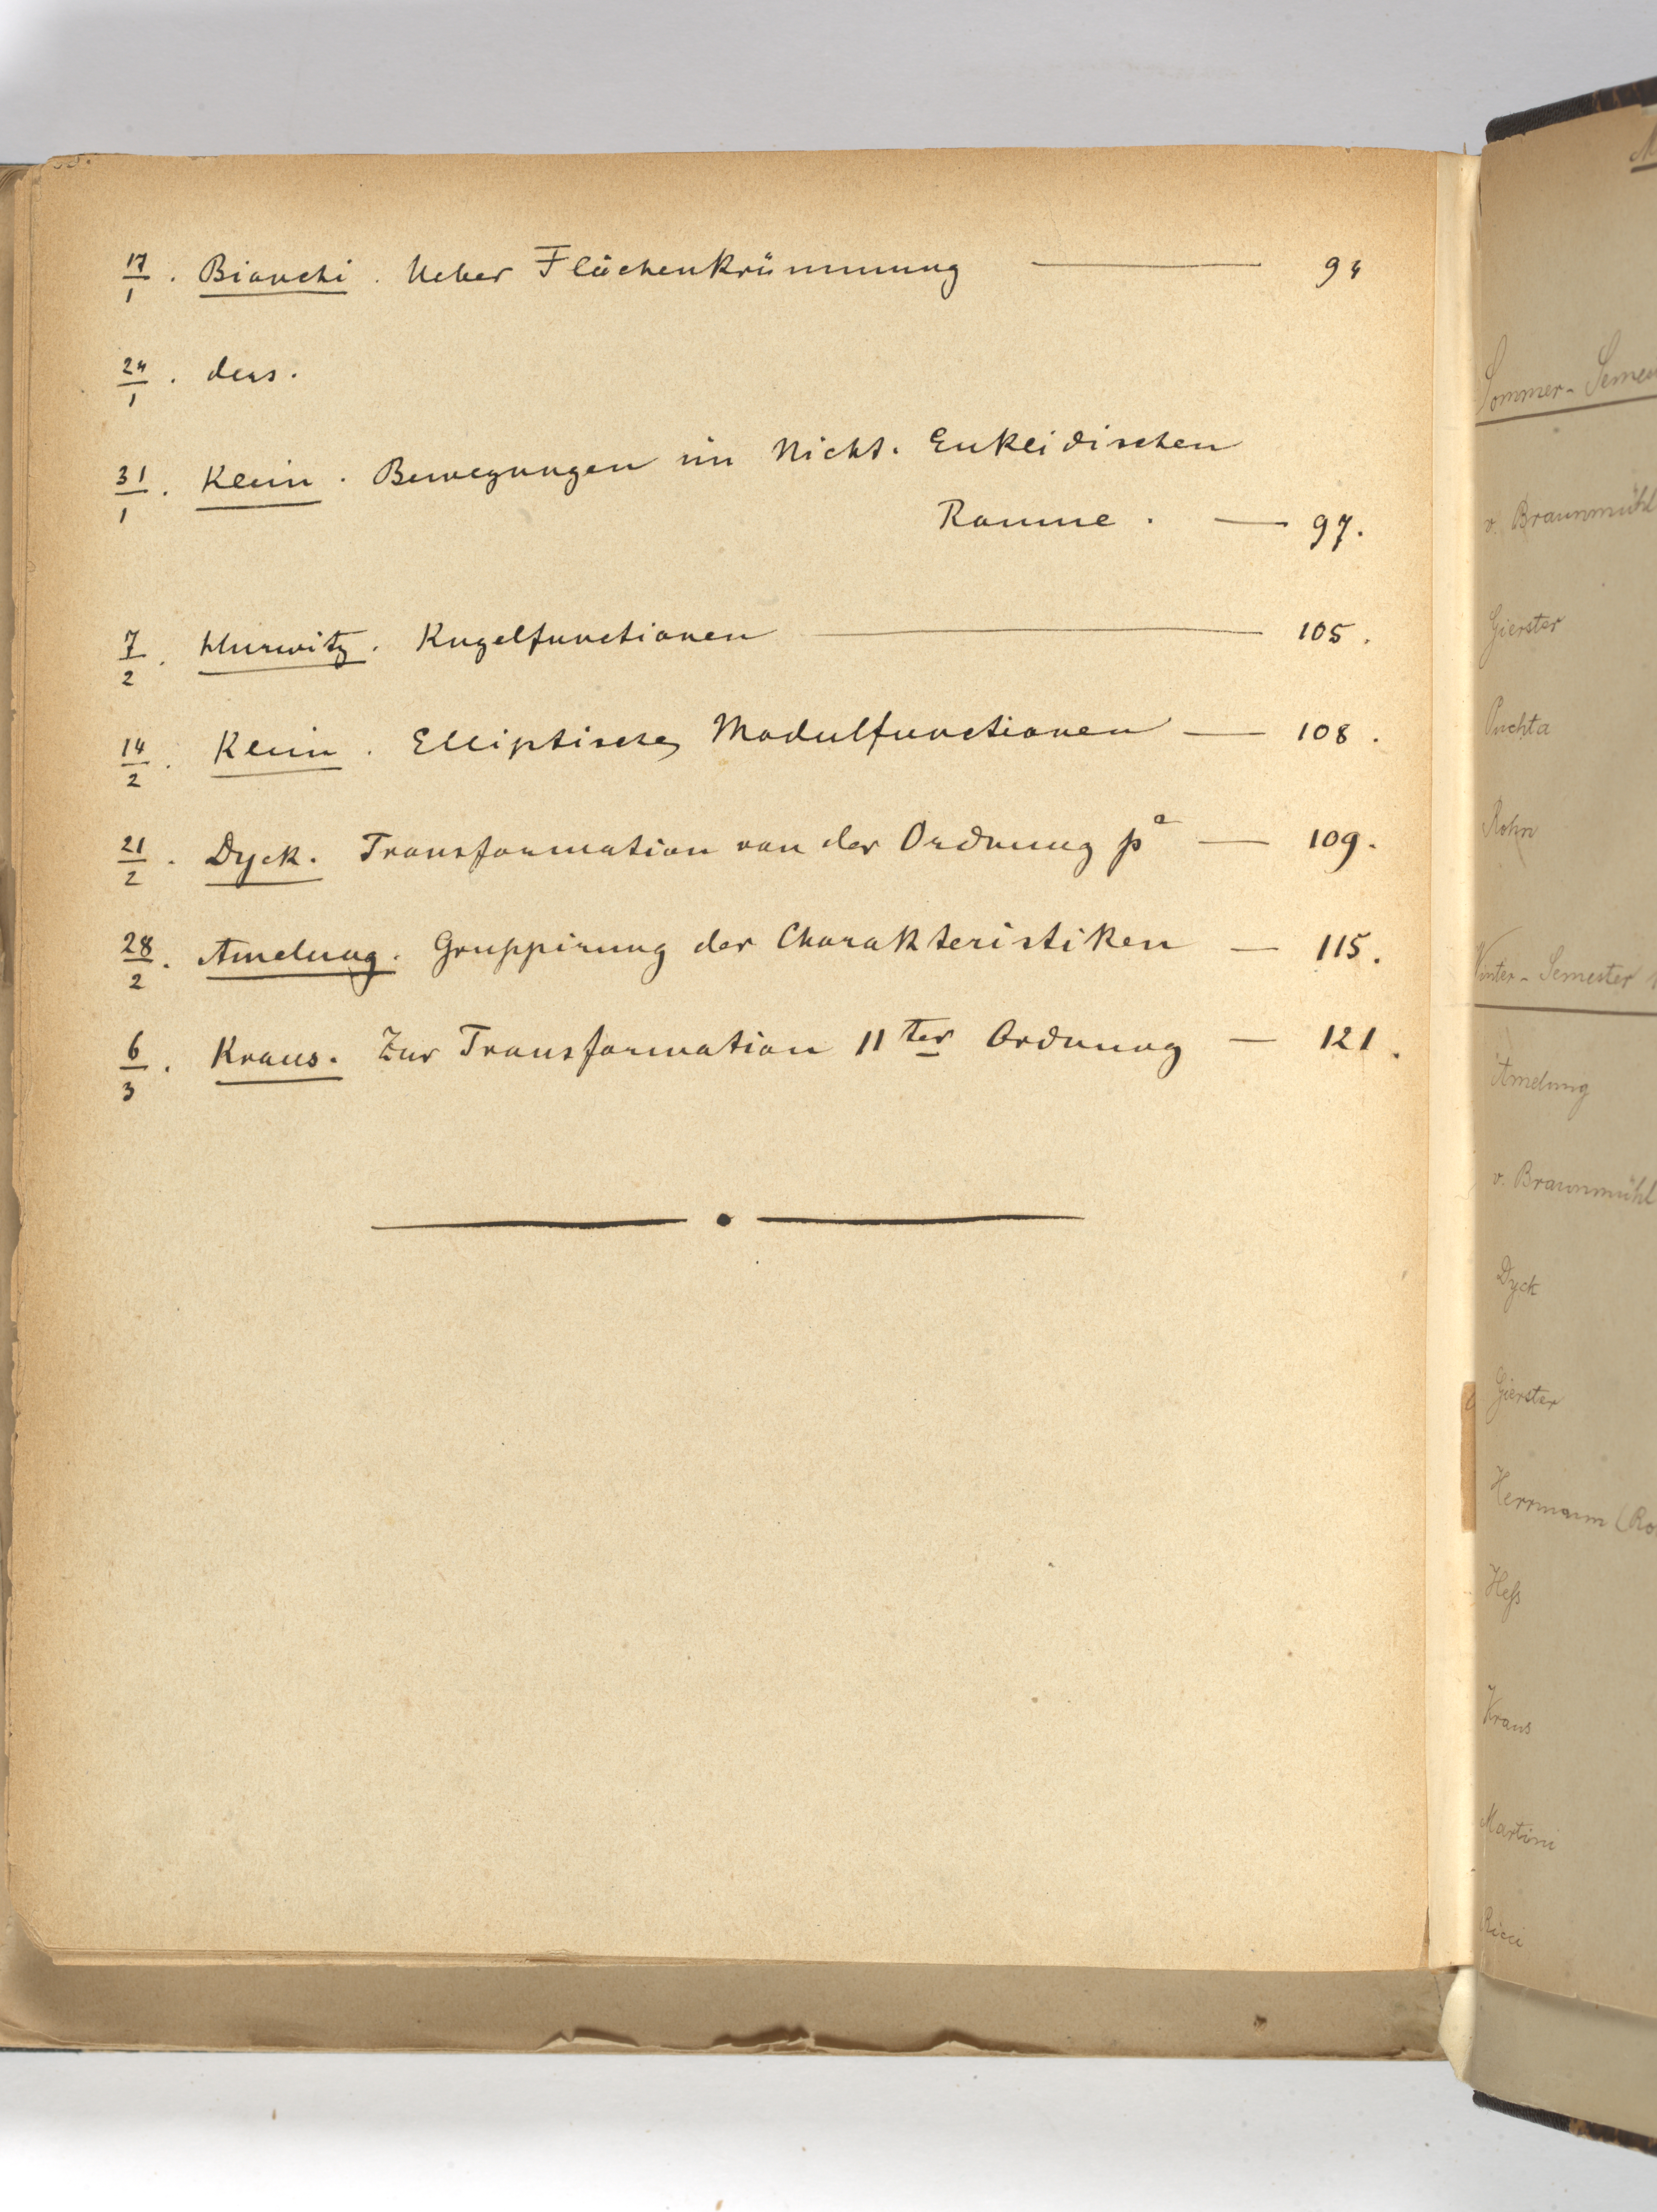 17/1. Bianchi. Ueber Flächenkrümmung — 94
24/1. ders.
31/1. Klein. Bewegungen im Nicht-Euklidischen
Raume. — 97.
7/2. Hurwitz. Kugelfunctionen — 105.
14/2. Klein. Elliptische Modulfunctionen — 108.
21/2. Dyck. Transformation von der Ordnung p^a — 109.
28/2. Amelung. Gruppirung der Charakteristiken — 115.
6/3. Kraus. Zur Transformation 11ter Ordnung — 121.
Sommer-
v. Braunmühl
Gierster
Puchta
Rohn
Winter-Semester
Amelung
v. Braunmühl
Dyck
Gierster
Herrmann
Heß
Kraus
Martini
Ricci